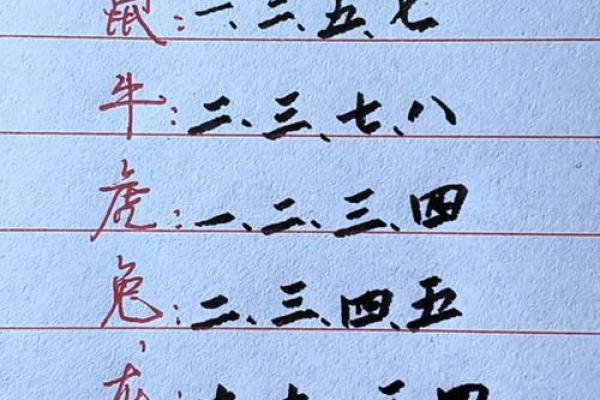 鼠:一、二、五、七
牛:二、三、七、八
虎:一、二、三、四
兔:二、三、四、五